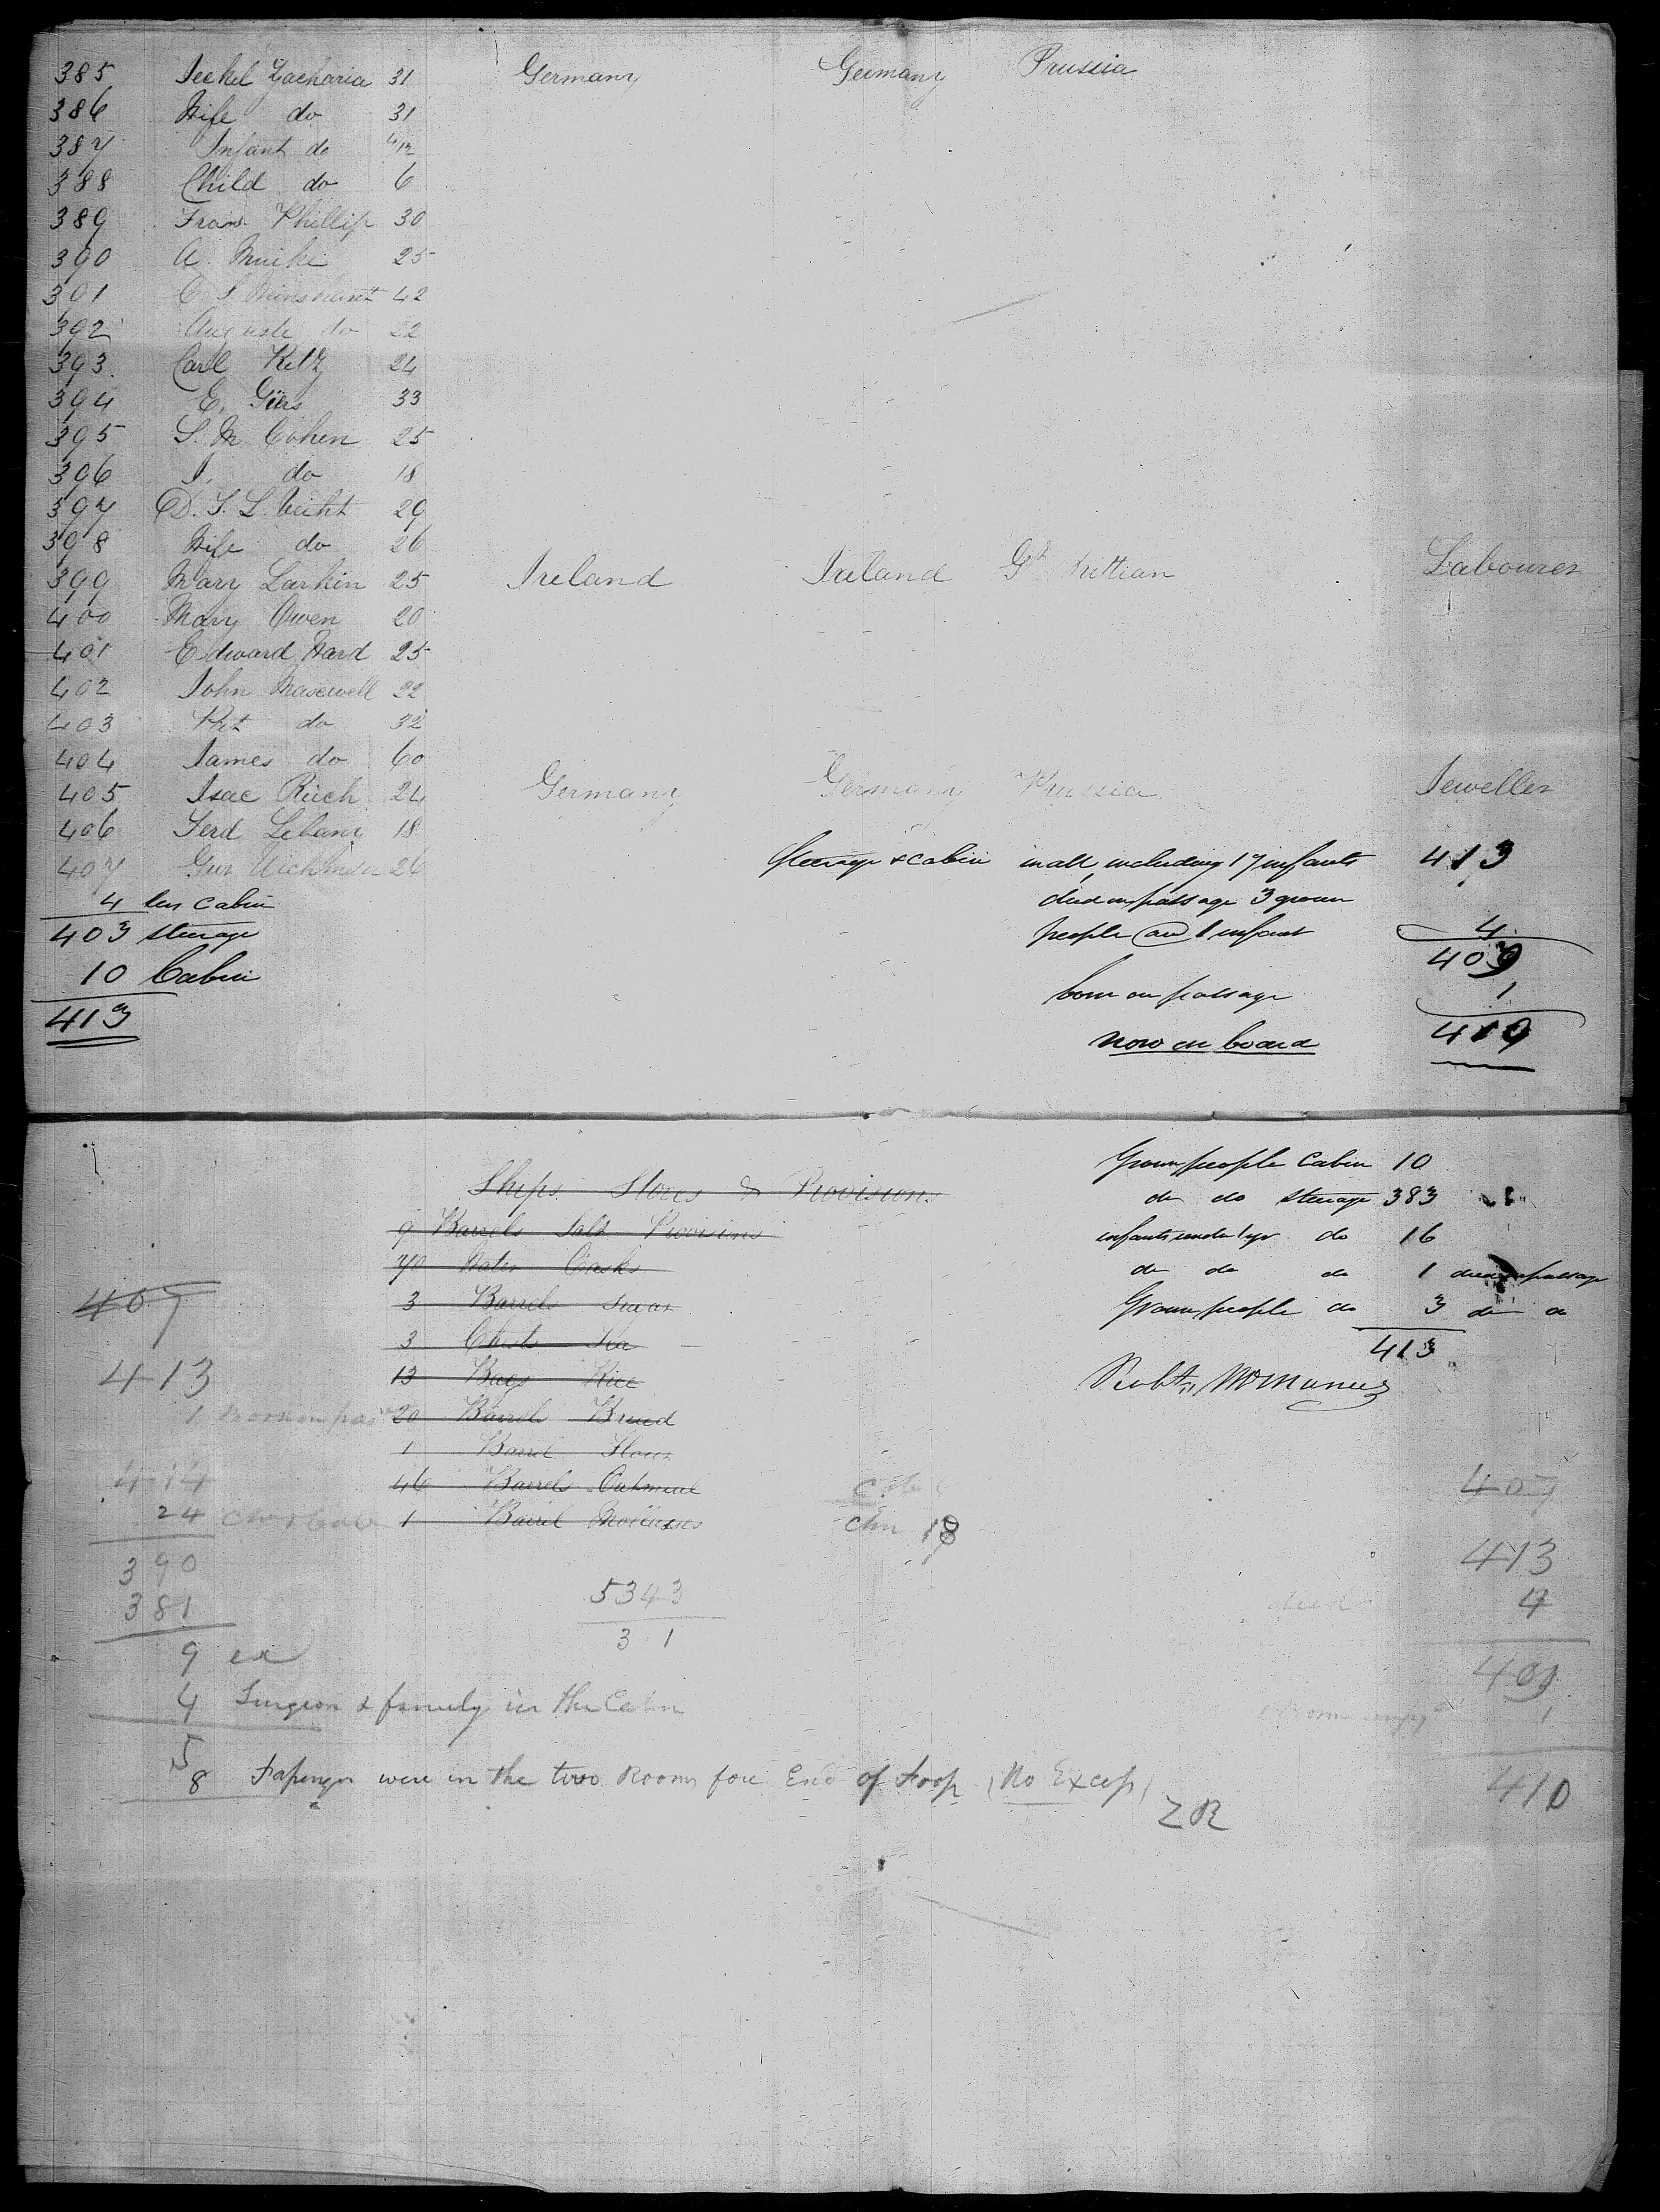 385 Jeckel Zacharia 31 Germany Germany Prussia
386 Wife do 31
387 Infant do
388 Child do 6
389 Frans Phillip 30
390 A. 25
391 C S 42
392 Auguste do 22
393 Carl Keltz 24
394 E. Giers 33
395 S. M. Cohen 25
396 J. do 18
397 D. S. L. Vecht 29
398 Wife do 26
399 Mary Larkin 25 Ireland Ireland Gt Brittian Labourer
400 Mary Owen 20
401 Edward Ward 25
402 John Maxwell 22
403 Pat do 32
404 James do 60
405 Isac Rüch 24 Germany Germany Prussia Jeweller
406 Ferd 18
407 Gus 26
Steerage & Cabin in all, including 17 infants 413
4 less cabin
died on passage 3 grown
403 steerage
people and 1 infant 4
10 Cabin
409
born on passage 1
413
now on board 410
Grown people Cabin 10
Ships Stores & Provisions
do do steerage 383
9 Barrels Salt Provisions
infants under 1 yr do 16
70 Water Casks
do do do 1 died on passage
407
3 Barrels Sugar
Grown people do 3 do do
3 Chests Tea
413
413
13 Bags Rice
Robt McManus
1 Born on pas
20 Barrels Bread
1 Barrel Flour
414
46 Barrels Oatmeal
407
24
1 Barrel Molasses
chn 18
390
413
381
5343
died 4
31
9 ex
409
4 Surgeon & family in the Cabin
Born 1
5
8 Passenger were in the two Rooms fore End of Poop (No Excess)
410
ZR